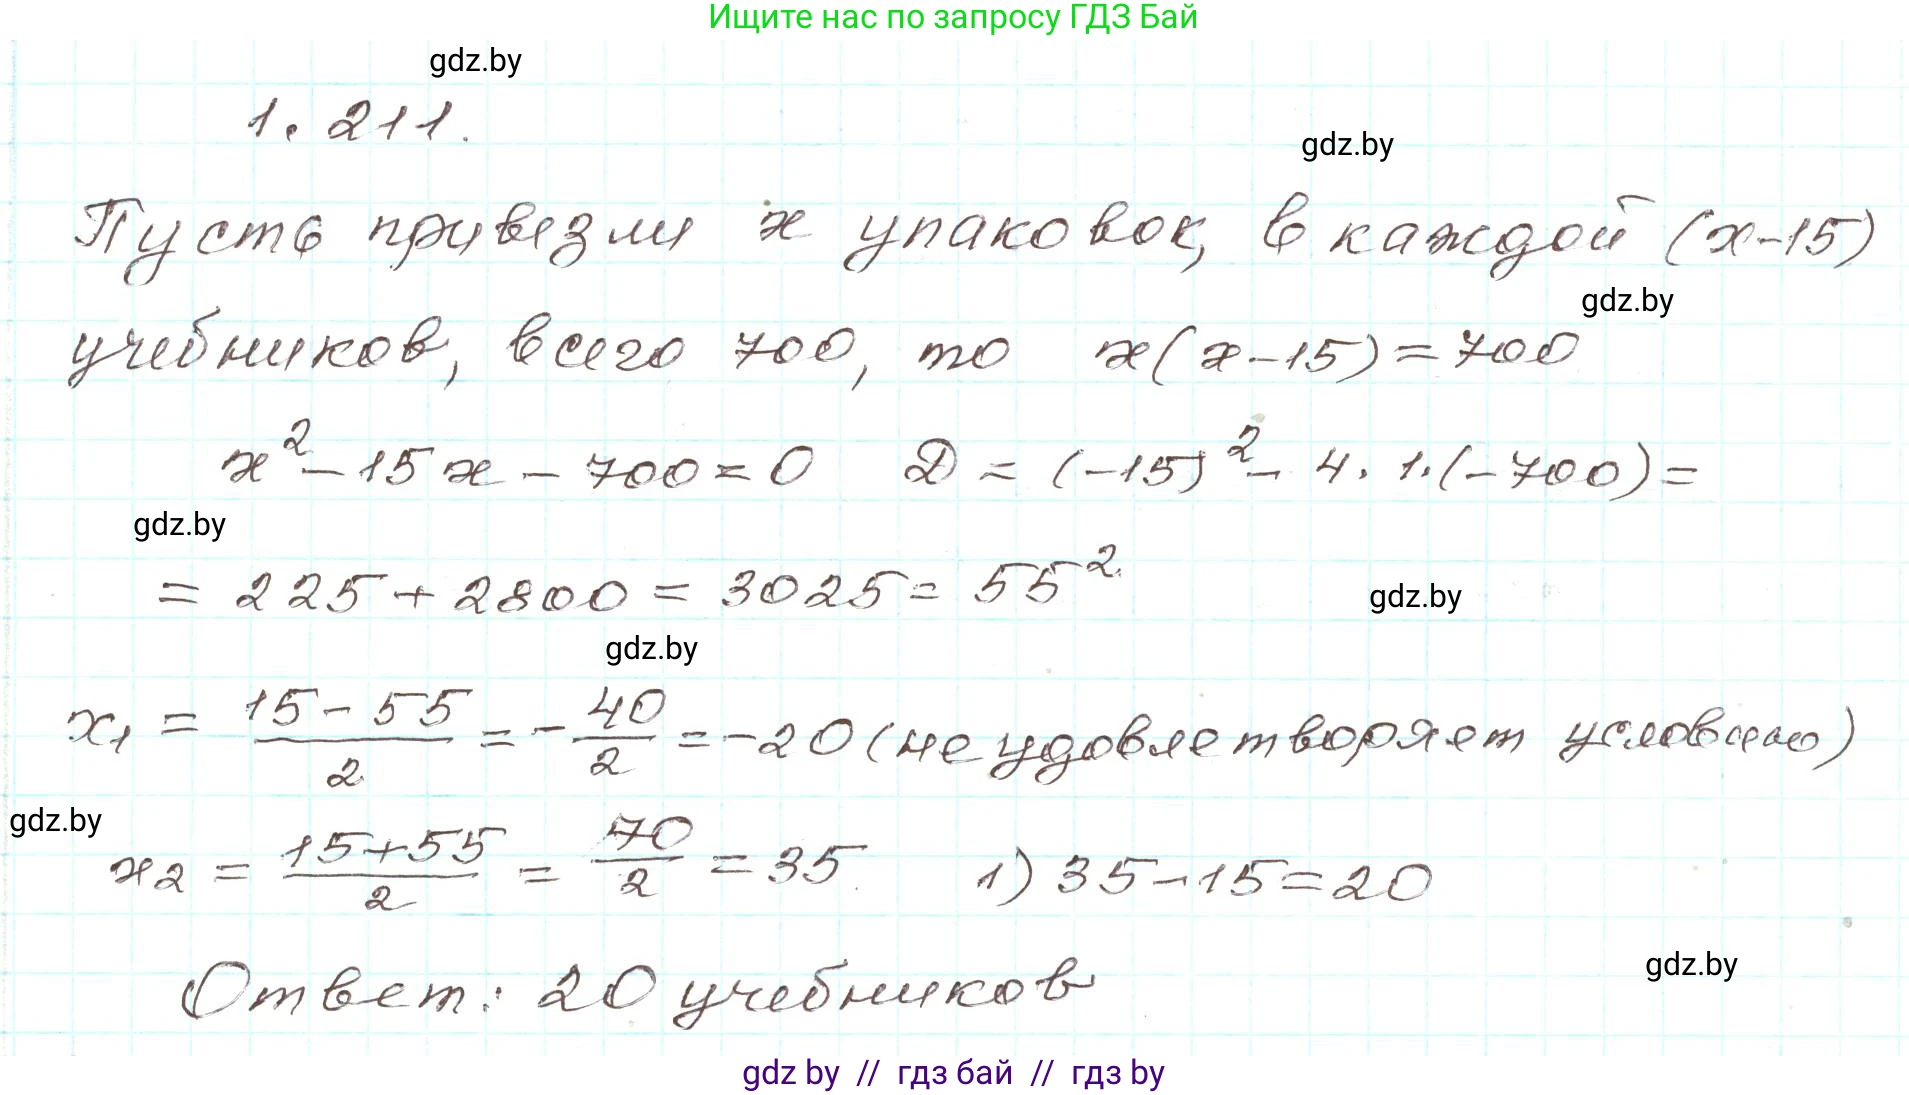 Ищите нас по запросу ГДЗ Бай
gdz.by
1.211.
gdz.by
Пусть привезли x упаковок, в каждой (x-15)
gdz.by
учебников, всего 700, то x(x-15)=700
x²-15x-700=0 Д=(-15)²-4·1·(-700)=
gdz.by
=225+2800=3025=55²
gdz.by
gdz.by
x₁ = (15-55)/2 = -40/2 = -20 (не удовлетворяет условию)
gdz.by
x₂ = (15+55)/2 = 70/2 = 35 1) 35-15=20
gdz.by
Ответ: 20 учебников
gdz by // гдз бай // гдз by